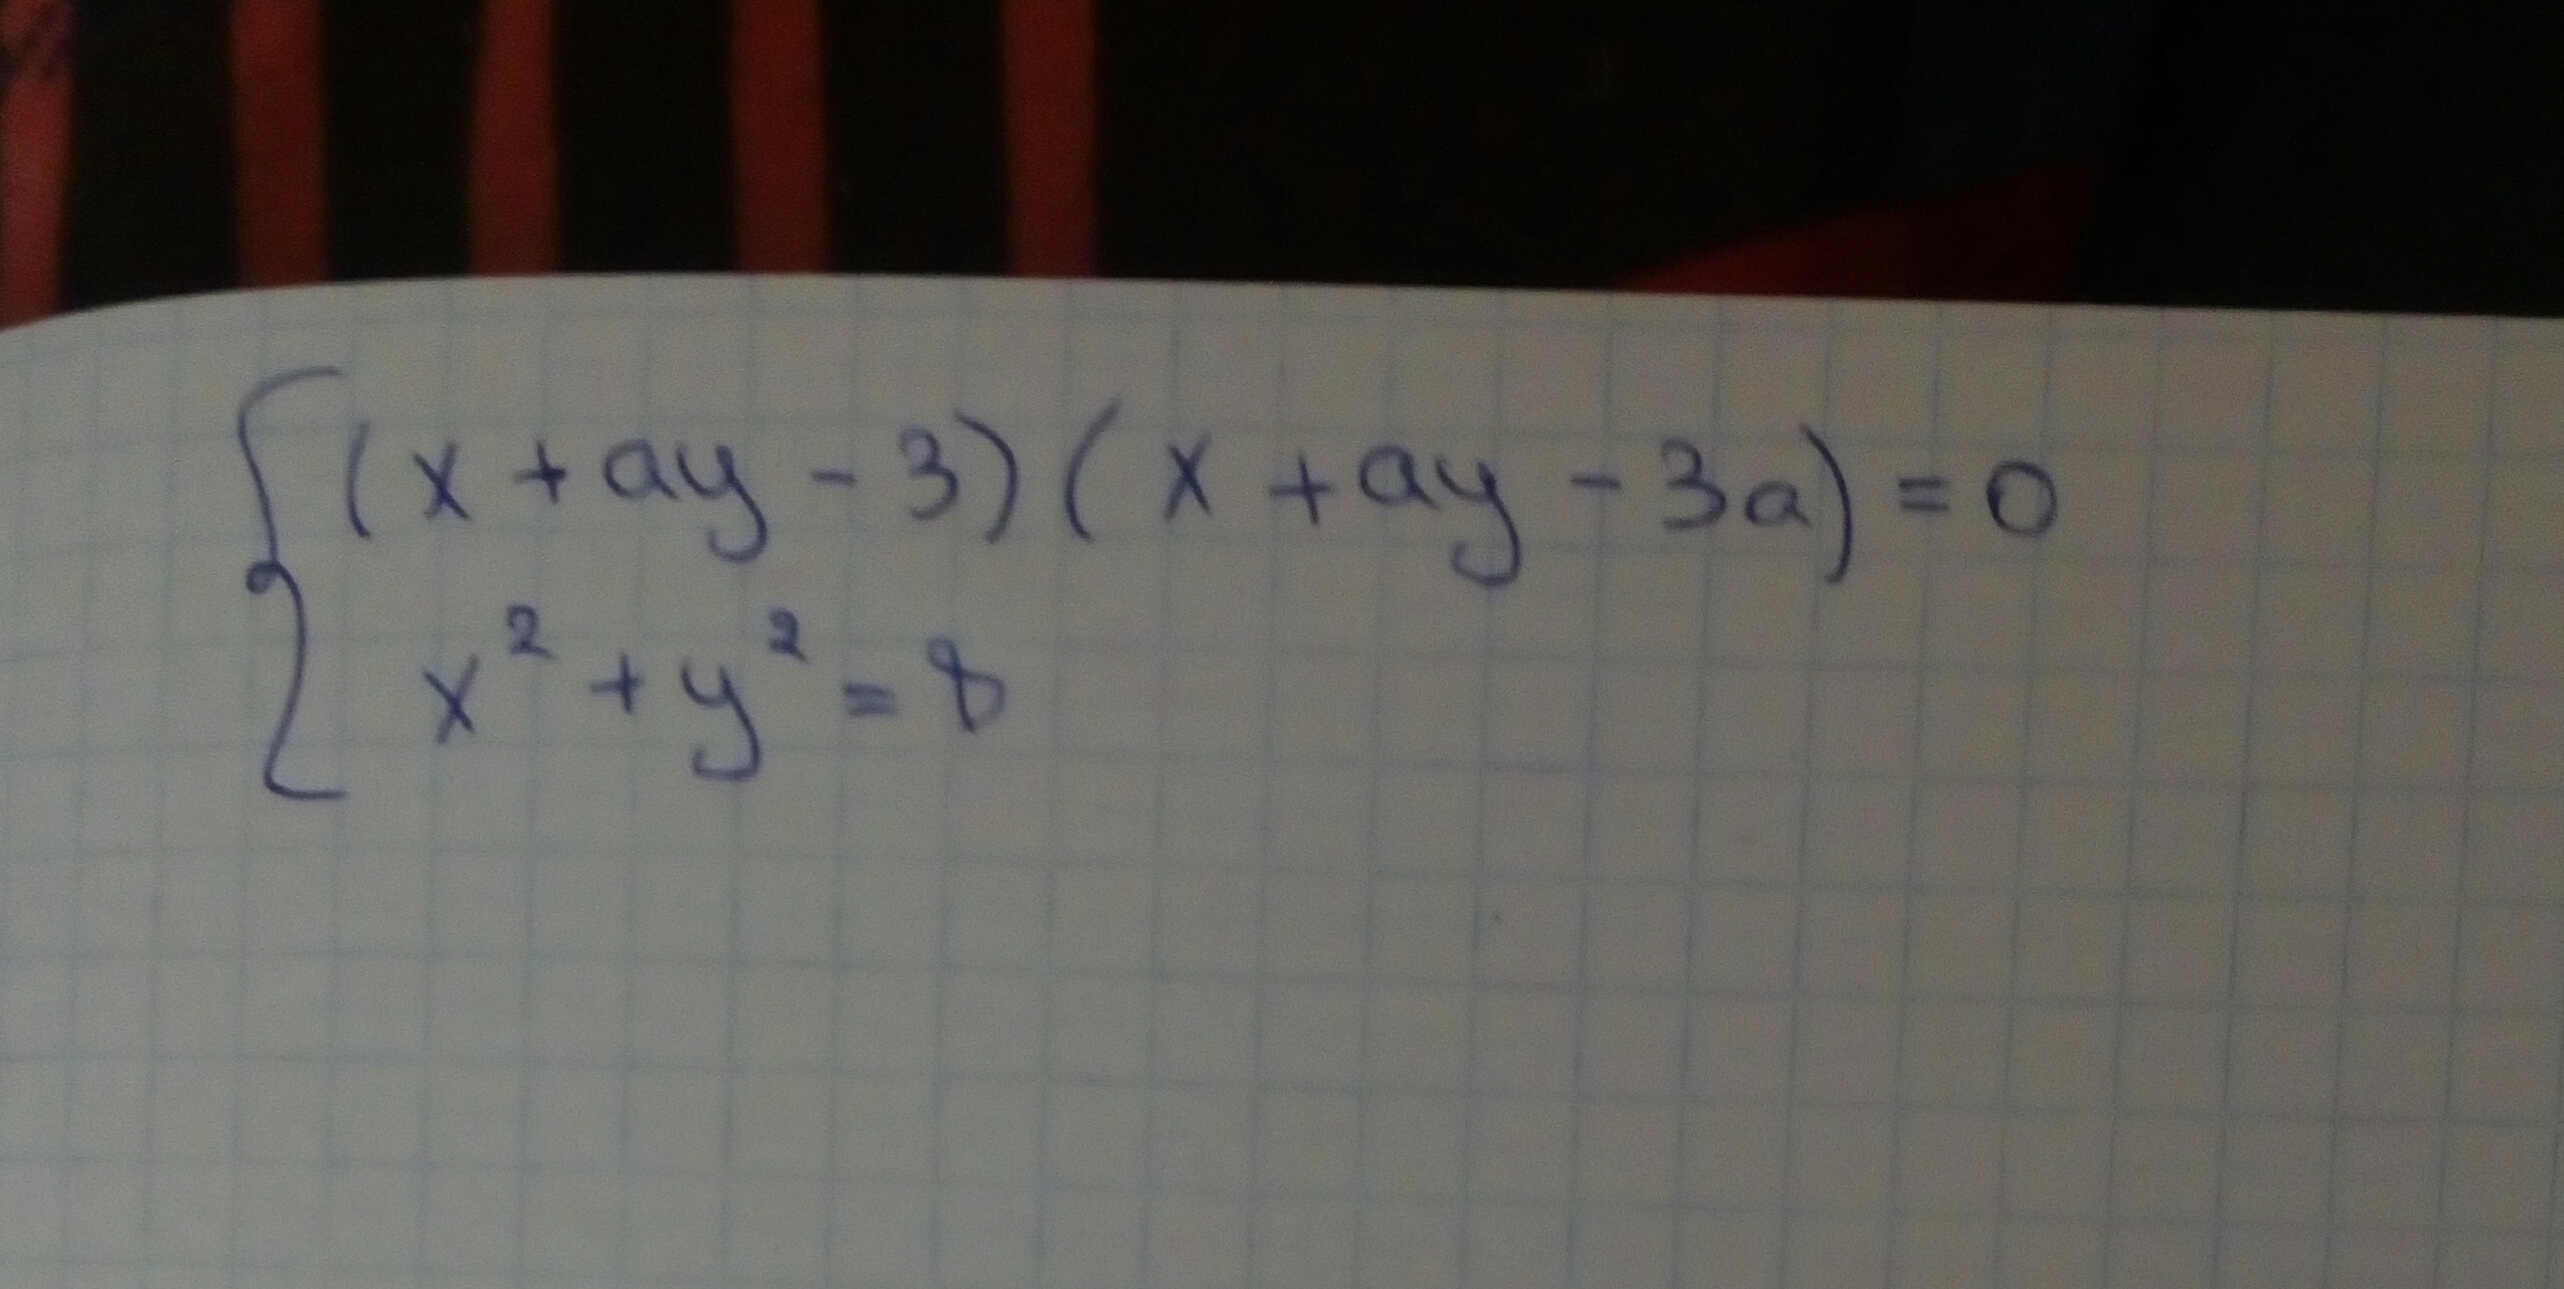 (x + ay - 3)(x + ay - 3a) = 0
x² + y² = 8